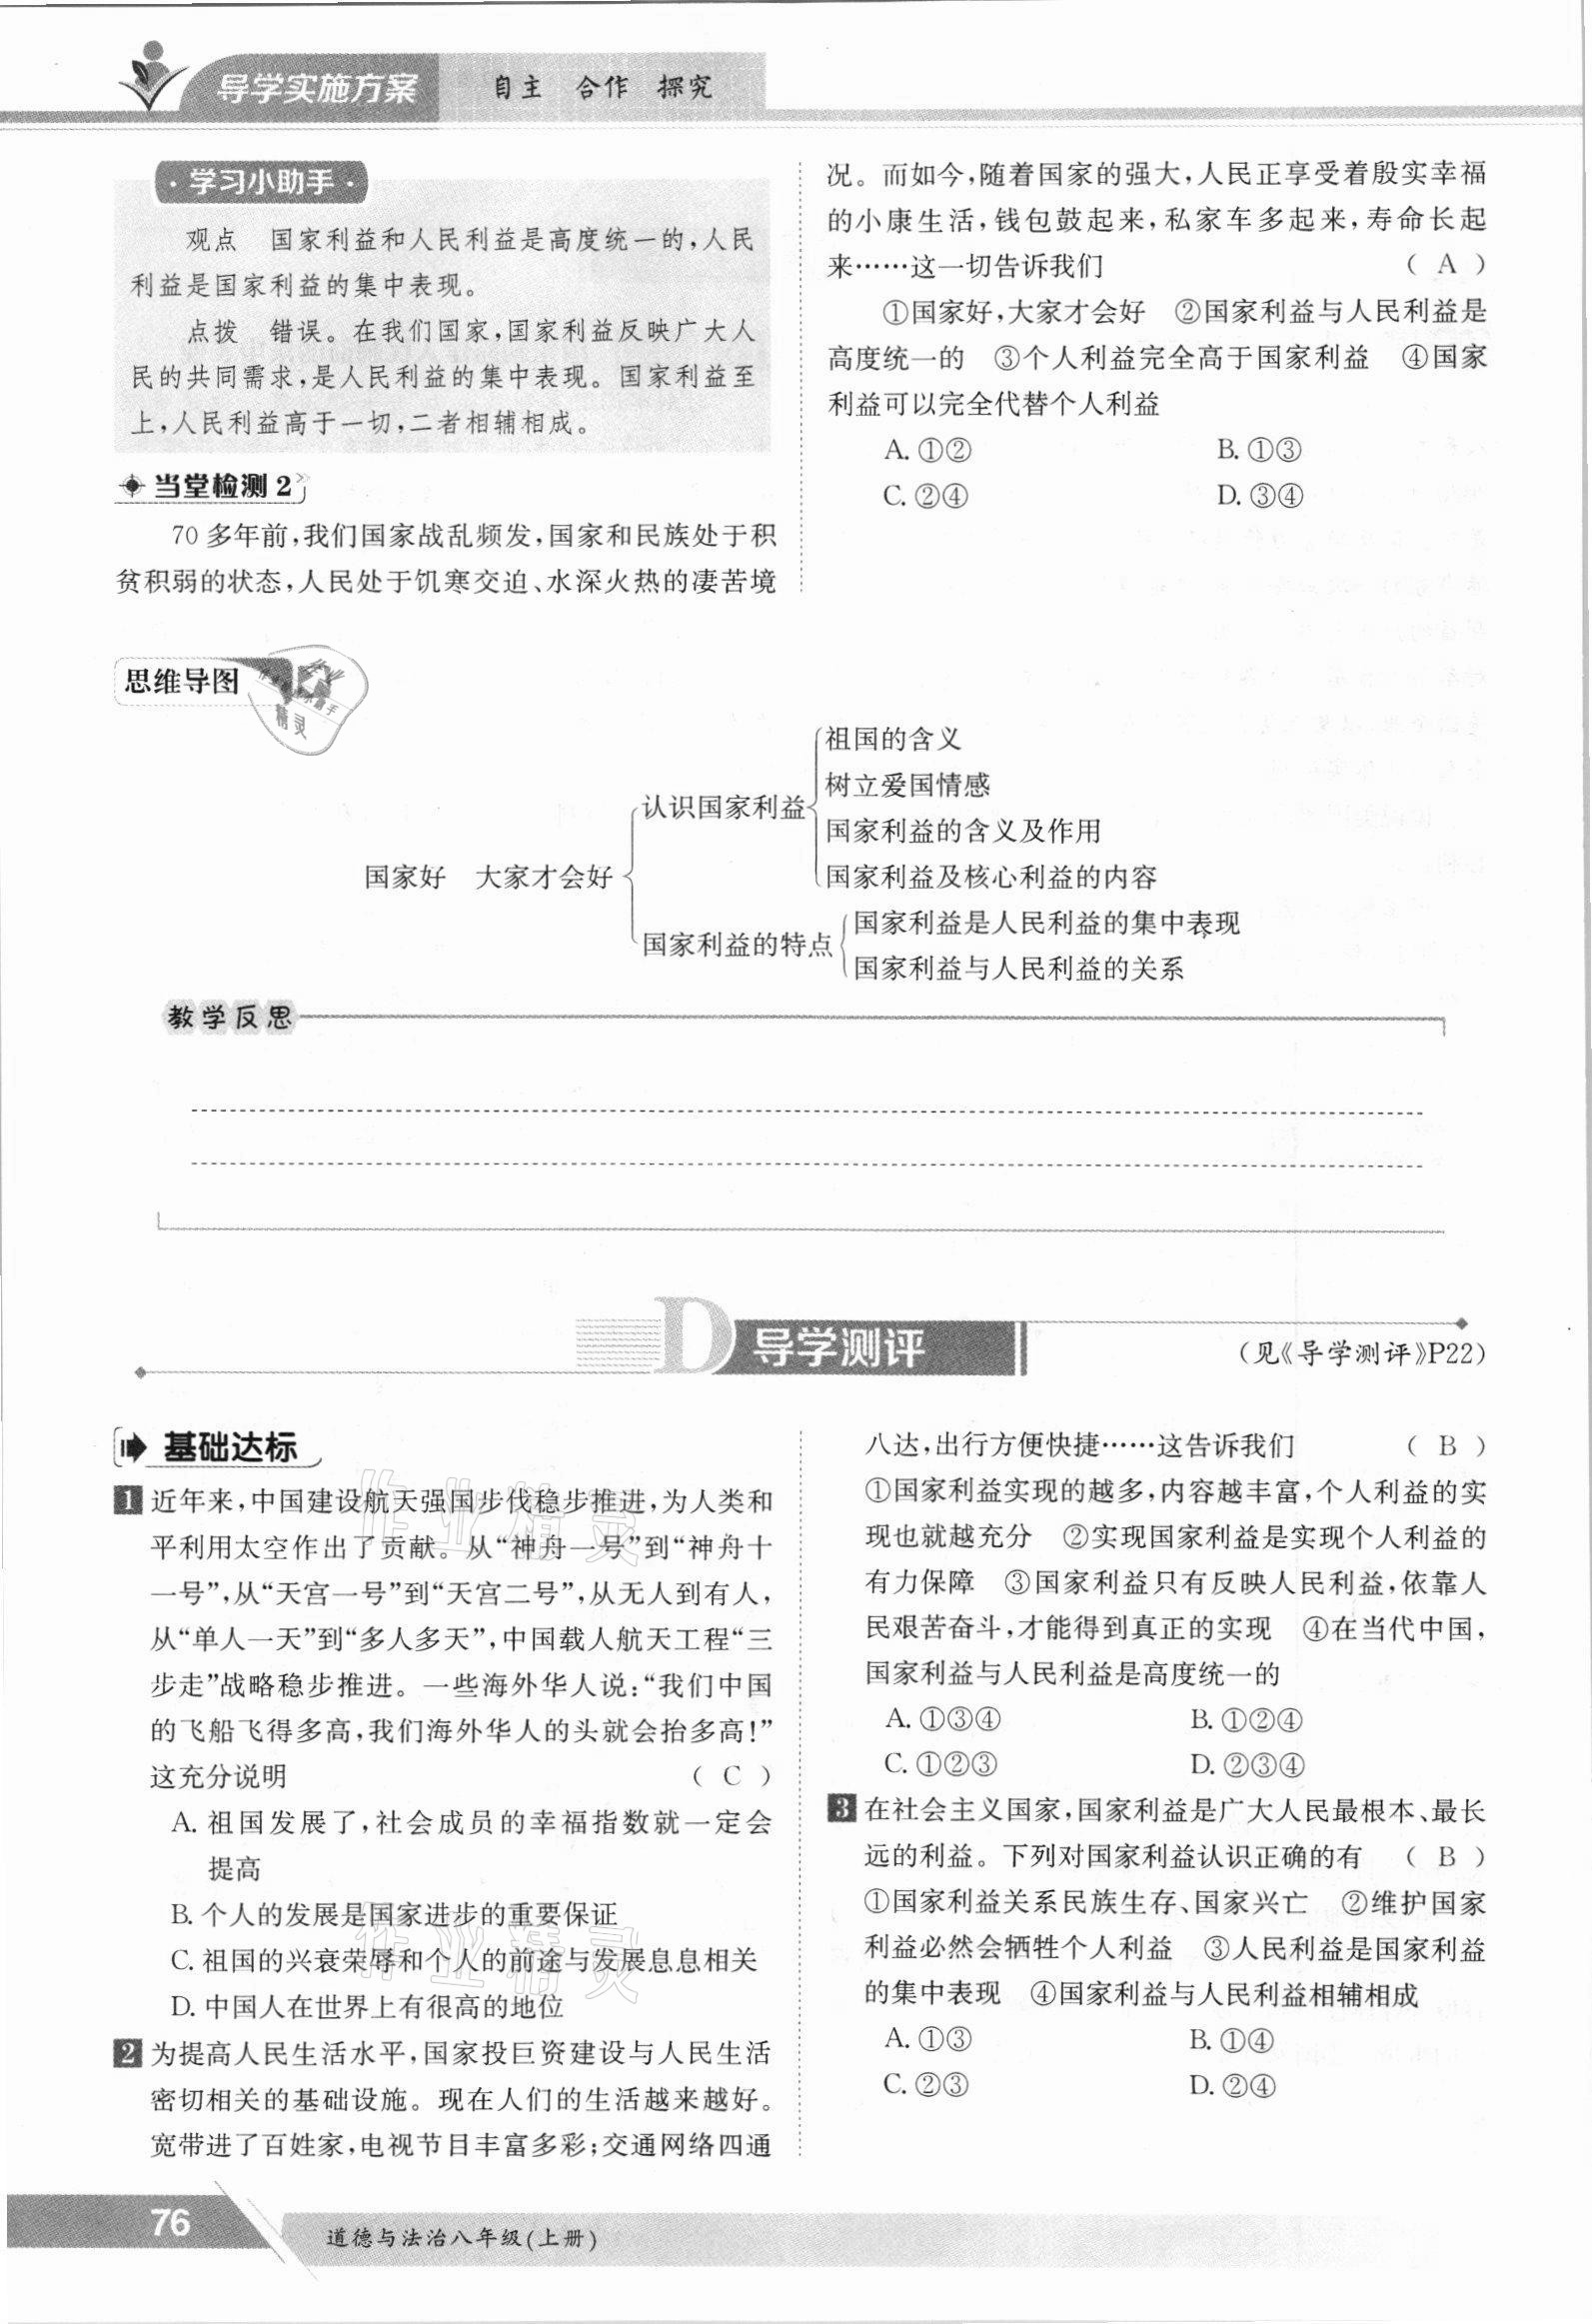 导学实施方案 自主 合作 探究
·学习小助手·
观点 国家利益和人民利益是高度统一的,人民
利益是国家利益的集中表现。
点拨 错误。在我们国家,国家利益反映广大人
民的共同需求,是人民利益的集中表现。国家利益至
上,人民利益高于一切,二者相辅相成。
当堂检测2
70多年前,我们国家战乱频发,国家和民族处于积
贫积弱的状态,人民处于饥寒交迫、水深火热的凄苦境
况。而如今,随着国家的强大,人民正享受着殷实幸福
的小康生活,钱包鼓起来,私家车多起来,寿命长起
来……这一切告诉我们 ( A )
①国家好,大家才会好 ②国家利益与人民利益是
高度统一的 ③个人利益完全高于国家利益 ④国家
利益可以完全代替个人利益
A. ①② B. ①③
C. ②④ D. ③④
思维导图
精灵
祖国的含义
树立爱国情感
认识国家利益
国家利益的含义及作用
国家好 大家才会好
国家利益及核心利益的内容
国家利益是人民利益的集中表现
国家利益的特点
国家利益与人民利益的关系
教学反思
D 导学测评
(见《导学测评》P22)
基础达标
1 近年来,中国建设航天强国步伐稳步推进,为人类和
平利用太空作出了贡献。从“神舟一号”到“神舟十
一号”,从“天宫一号”到“天宫二号”,从无人到有人,
从“单人一天”到“多人多天”,中国载人航天工程“三
步走”战略稳步推进。一些海外华人说:“我们中国
的飞船飞得多高,我们海外华人的头就会抬多高!”
这充分说明 ( C )
A. 祖国发展了,社会成员的幸福指数就一定会
提高
B. 个人的发展是国家进步的重要保证
C. 祖国的兴衰荣辱和个人的前途与发展息息相关
D. 中国人在世界上有很高的地位
2 为提高人民生活水平,国家投巨资建设与人民生活
密切相关的基础设施。现在人们的生活越来越好。
宽带进了百姓家,电视节目丰富多彩;交通网络四通
八达,出行方便快捷……这告诉我们 ( B )
①国家利益实现的越多,内容越丰富,个人利益的实
现也就越充分 ②实现国家利益是实现个人利益的
有力保障 ③国家利益只有反映人民利益,依靠人
民艰苦奋斗,才能得到真正的实现 ④在当代中国,
国家利益与人民利益是高度统一的
A. ①③④ B. ①②④
C. ①②③ D. ②③④
3 在社会主义国家,国家利益是广大人民最根本、最长
远的利益。下列对国家利益认识正确的有 ( B )
①国家利益关系民族生存、国家兴亡 ②维护国家
利益必然会牺牲个人利益 ③人民利益是国家利益
的集中表现 ④国家利益与人民利益相辅相成
A. ①③ B. ①④
C. ②③ D. ②④
作业精灵
作业精灵
76 道德与法治八年级(上册)